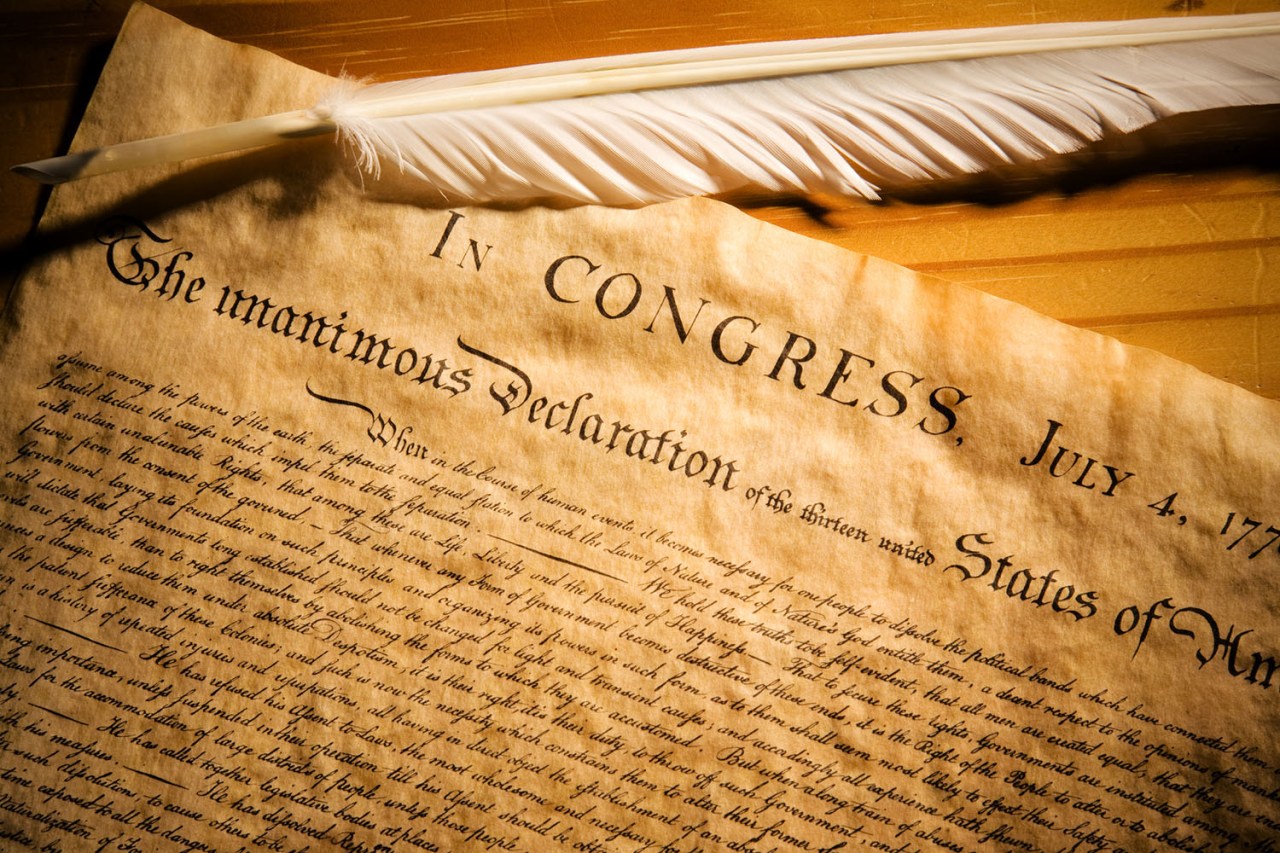 In CONGRESS, July 4, 177
The unanimous Declaration of the thirteen united States of Am
When in the Course of human events, it becomes necessary for one people to dissolve the political bands which have connected them
assume among the powers of the earth, the separate and equal station to which the Laws of Nature and of Nature's God entitle them, a decent respect to the opinions of
should declare the causes which impel them to the separation. We hold these truths to be self-evident, that all men are created equal, that they are
with certain unalienable Rights, that among these are Life, Liberty and the pursuit of Happiness.— That to secure these rights, Governments are instituted among
powers from the consent of the governed, — That whenever any Form of Government becomes destructive of these ends, it is the Right of the People to alter or to abolish
Government, laying its foundation on such principles and organizing its powers in such form, as to them shall seem most likely to effect their Safety
will dictate that Governments long established should not be changed for light and transient causes; and accordingly all experience hath shewn,
are sufferable, than to right themselves by abolishing the forms to which they are accustomed. But when a long train of abuses
a design to reduce them under absolute Despotism, it is their right, it is their duty, to throw off such Government,
the patient sufferance of these Colonies; and such is now the necessity which constrains them to alter their former
is a history of repeated injuries and usurpations, all having in direct object the establishment of an
He has refused his Assent to Laws, the most wholesome and necessary for
importance, unless suspended in their operation till his Assent should be
Laws for the accommodation of large districts of people, unless those people
He has called together legislative bodies at places
his measures. He has dissolved Repr
such dissolutions, to cause others to be
time exposed to all the dangers
of